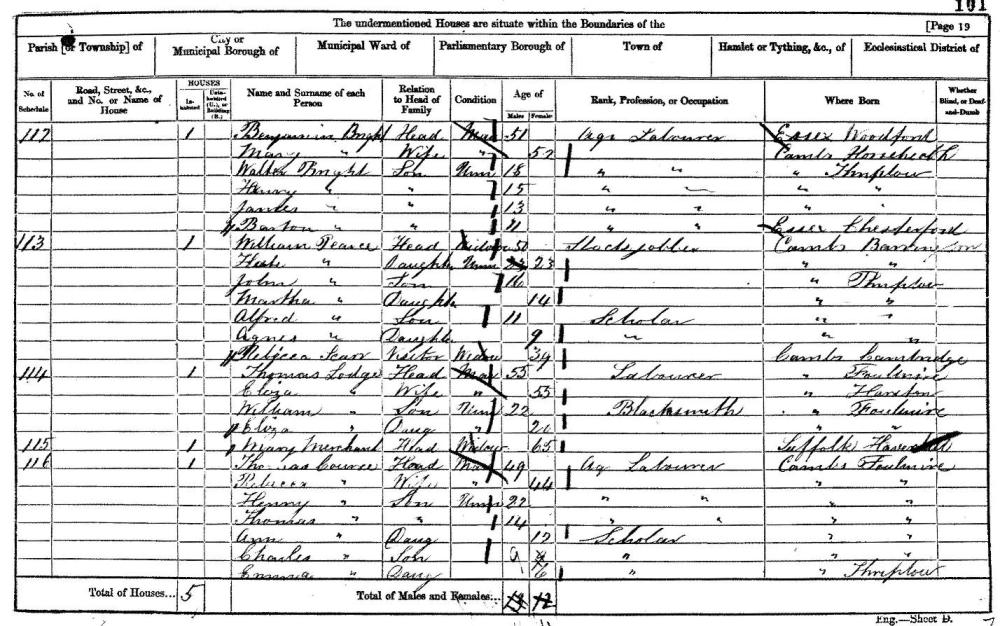 101
The undermentioned Houses are situate within the Boundaries of the [Page 19
Parish [or Township] of City or Municipal Borough of Municipal Ward of Parliamentary Borough of Town of Hamlet or Tything, &c., of Ecclesiastical District of
No. of Schedule Road, Street, &c., and No. or Name of House HOUSES Inhabited Uninhabited (U.), or Building (B.) Name and Surname of each Person Relation to Head of Family Condition Age of Males Females Rank, Profession, or Occupation Where Born Whether Blind, or Deaf-and-Dumb
112 1 Benjamin Bright Head Mar 51 Ag Labourer Essex Woodford
Mary " Wife " 52 Cambs Horseheath
Walter Bright Son Unm 18 " " " Thriplow
Henry " " 15 " " " "
James " " 13 " " " "
Barton " " 11 " " Essex Chesterford
113 1 William Pearce Head Widower 50 Cambs Barrington
" Daughter Unm 23 " "
John " Son 16 " Thriplow
Martha " Daughter 14 " "
Alfred " Son 11 Scholar " "
Agnes " Daughter 9 " " "
Rebecca Visitor 39 Cambs Cambridge
114 1 Thomas Lodge Head Mar 55 Labourer " Foulmire
Eliza " Wife " 53 " Harston
William " Son Unm 22 Blacksmith " Foulmire
Eliza " Daug " 20 " "
115 1 Mary Merchant Head Widow 65 Suffolk Haverhill
116 1 Thomas Head Mar 49 Ag Labourer Cambs Foulmire
Rebecca " Wife " 44 " "
Henry " Son Unm 22 " " " "
Thomas " " 14 " " " "
Ann " Daug 12 Scholar " "
Charles " Son 9 " " "
Emma " Daug 6 " " Thriplow
Total of Houses... 5 Total of Males and Females... 12
Eng.—Sheet D.